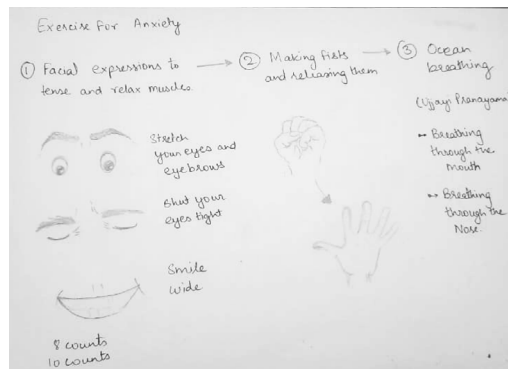 Exercise for Anxiety
① Facial expressions to
tense and relax muscles.
② Making fists
and releasing them
③ Ocean
breathing
(Ujjayi Pranayama
Breathing
through the
Mouth
Breathing
through the
Nose.
Stretch
your eyes and
eyebrows
Shut your
eyes tight
Smile
wide
8 counts
10 counts